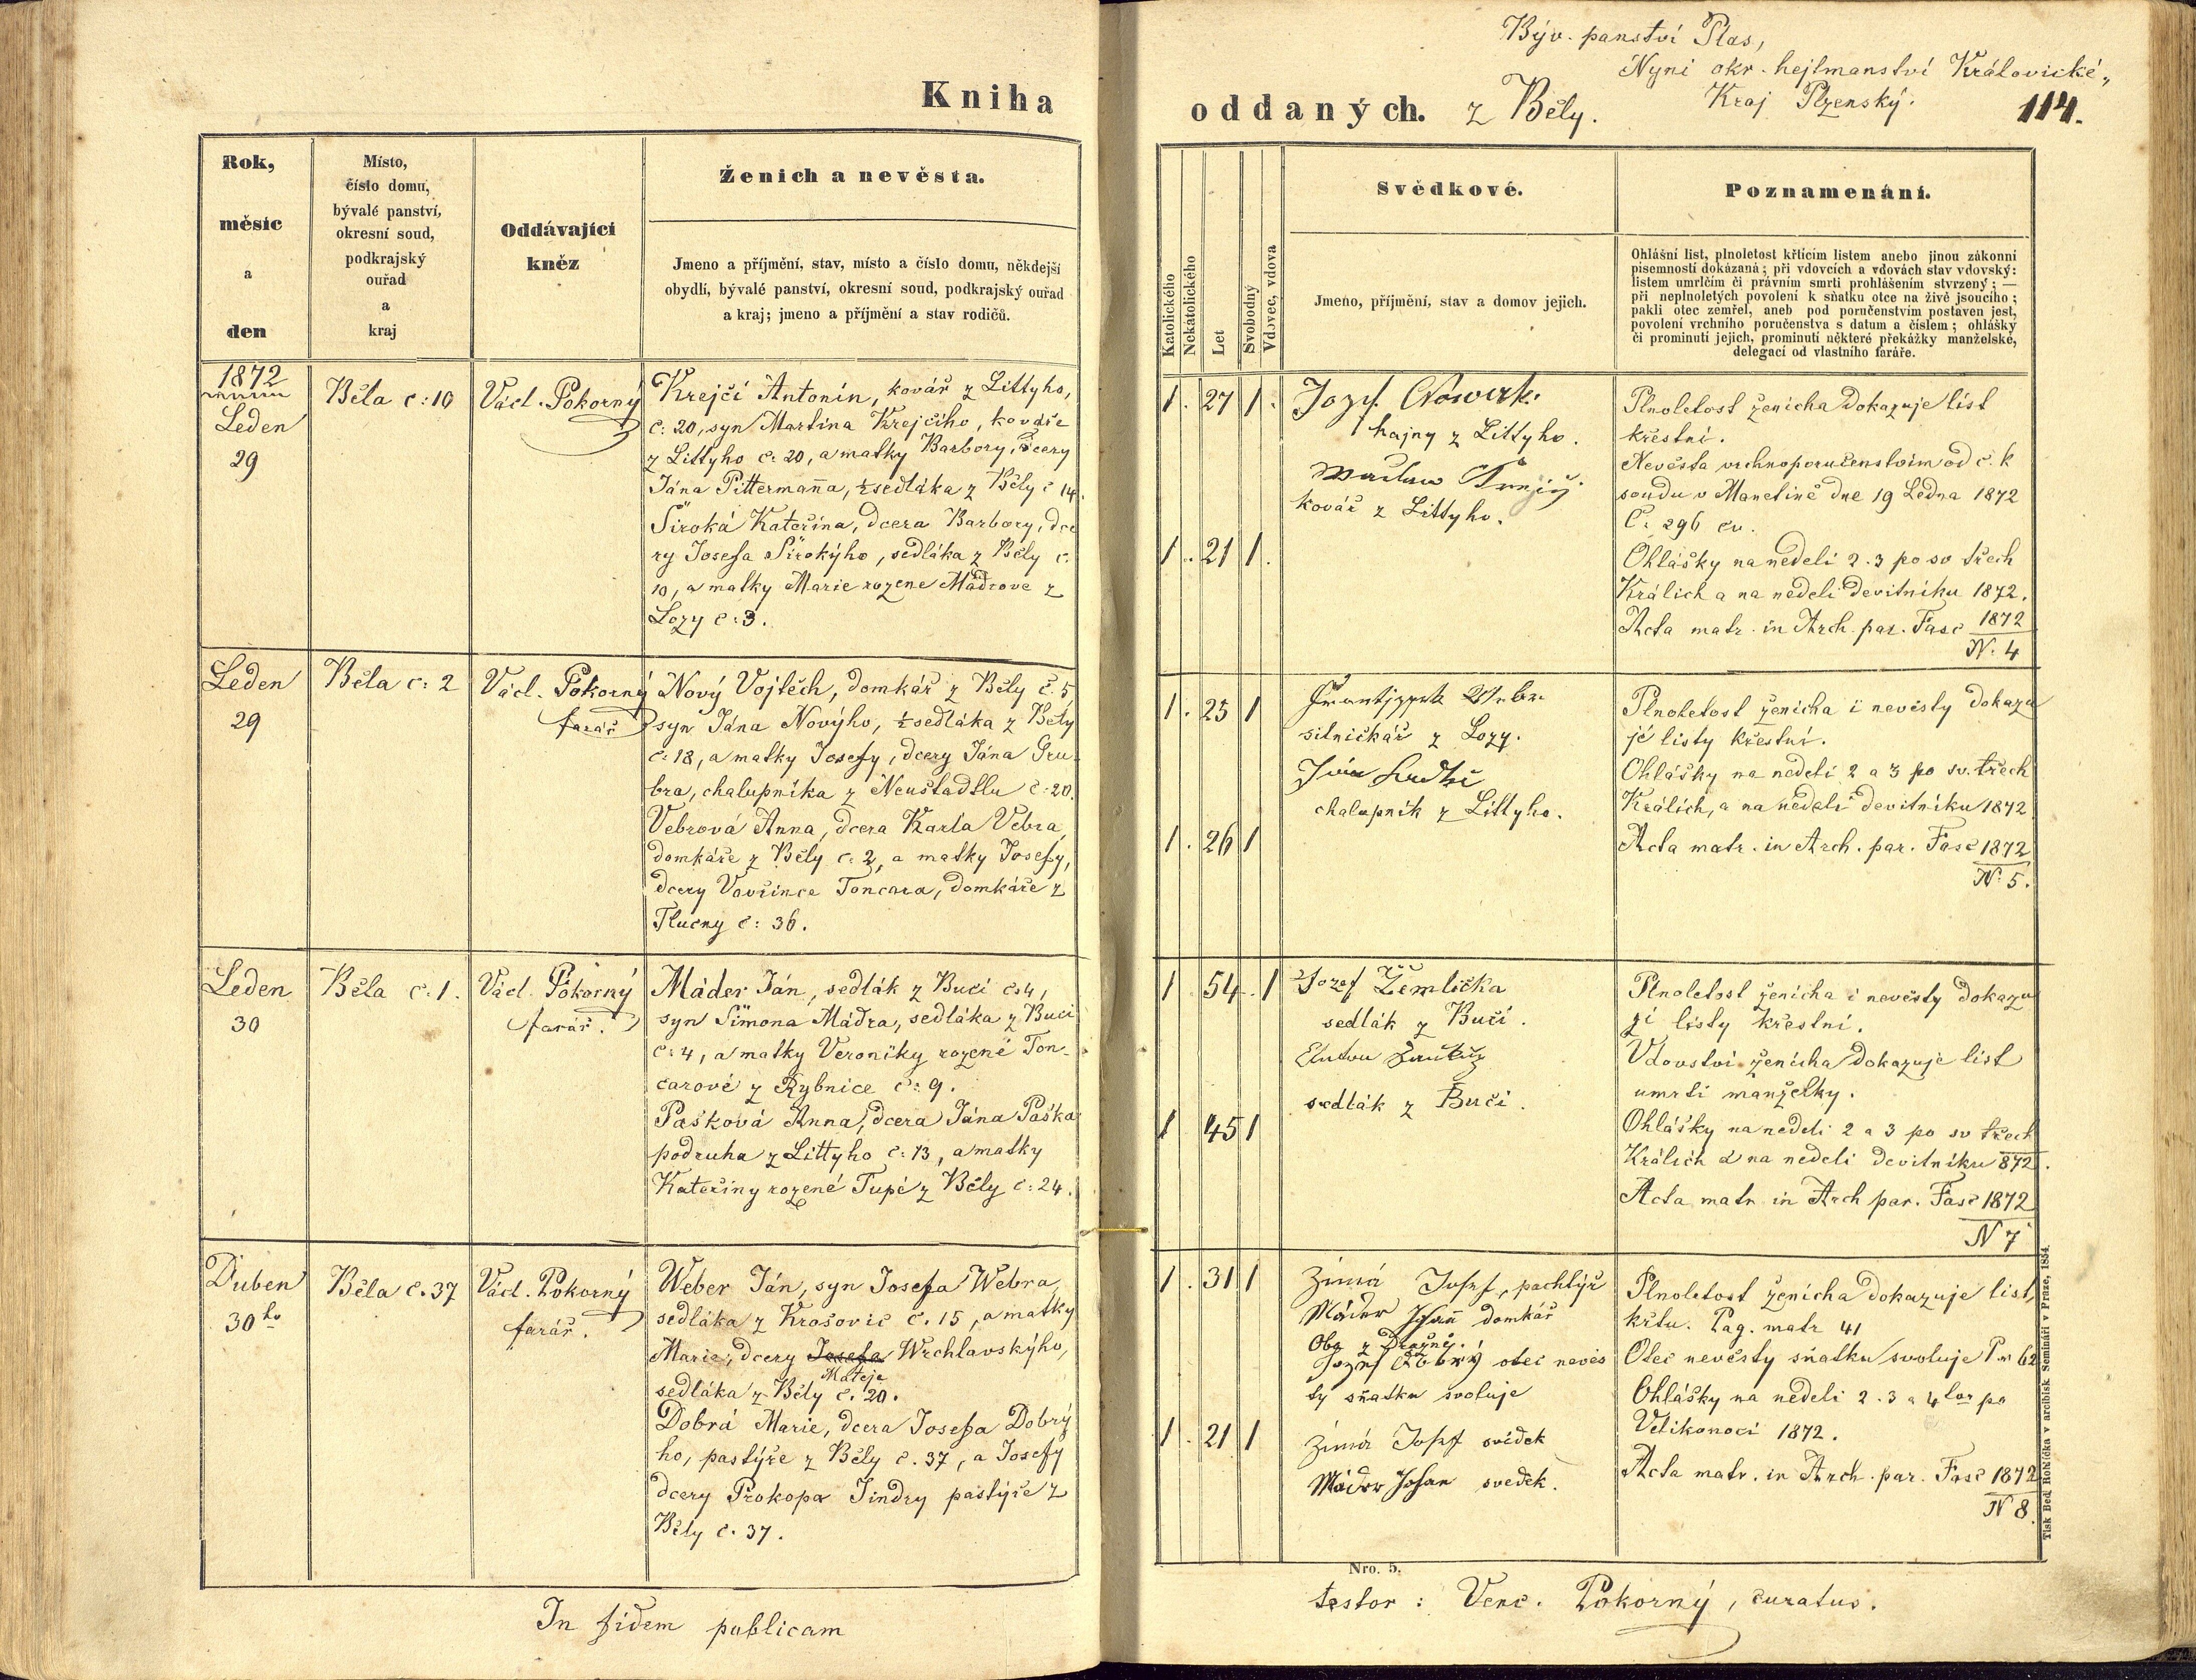 Kniha
Rok,
měsíc
a
den
Místo,
číslo domu,
bývalé panství,
okresní soud,
podkrajský
ouřad
a
kraj
Oddávající
kněz
Ženich a nevěsta.
Jmeno a příjmění, stav, místo a číslo domu, někdejší
obydlí, bývalé panství, okresní soud, podkrajský ouřad
a kraj; jmeno a příjmění a stav rodičů.
1872
Leden
29
Běla č: 10
Václ. Pokorný
Krejčí Antonín, kovář z Littyho,
č: 20, syn Martina Krejčího, kováře
z Littyho č: 20, a matky Barbory, dcery
Jána Pittermaña, ½ sedláka z Běly č 14.
Široká Kateřina, dcera Barbory, dce
ry Josefa Širokýho, sedláka z Běly č.
10, a matky Marie rozene Mádrove z
Lozy č: 3.
Leden
29
Běla č: 2
Václ. Pokorný
farář
Nový Vojtěch, domkář z Běly č. 5
syn Jána Novýho, ½ sedláka z Běly
č: 18, a matky Josefy, dcery Jána Gru-
bra, chalupníka z Neustadtlu č: 20.
Vebrová Anna, dcera Karla Vebra,
domkáře z Běly č: 2, a matky Josefy,
dcery Vavřince Toncara, domkáře z
Tlucny č: 36.
Leden
30
Běla č: 1.
Václ. Pokorný
farář.
Máder Ján, sedlák z Bučí č: 4,
syn Šimona Mádra, sedláka z Bučí
č: 4, a matky Veroniky rozené Ton-
carové z Rybnice č: 9.
Pašková Anna, dcera Jána Paška
podruha z Littyho č: 13, a matky
Kateřiny rozené Tupé z Běly č: 24.
Duben
30ho
Běla č. 37
Václ. Pokorný
farář.
Weber Ján, syn Josefa Webra,
sedláka z Krašovic č. 15, a matky
Marie, dcery Josefa Wrchlavskýho,
Matěje
sedláka z Běly č. 20.
Dobrá Marie, dcera Josefa Dobrý
ho, pastýře z Běly č. 37, a Josefy
dcery Prokopa Jindry pastýře z
Běly č. 37.
In fidem publicam
Býv. panství Plas,
Nyni okr. hejtmanství Královické,
Kraj Plzenský.
oddaných. z Běly.
114.
Katolického
Nekatolického
Let
Svobodný
Vdovec, vdova
Svědkové.
Jmeno, příjmění, stav a domov jejich.
Poznamenání.
Ohlášní list, plnoletost křticím listem anebo jinou zákonní
písemností dokázaná; při vdovcích a vdovách stav vdovský:
listem umrlčím či právním smrti prohlášením stvrzený; —
při neplnoletých povolení k sňatku otce na živě jsoucího;
pakli otec zemřel, aneb pod poručenstvím postaven jest,
povolení vrchního poručenstva s datum a číslem; ohlášky
či prominutí jejich, prominutí některé překážky manželské,
delegací od vlastního faráře.
1. 27 1.
Jozef Nowak
hajny z Littyho.
kovář z Littyho.
1. 21 1.
Plnoletost ženicha dokazuje list
křestní.
Nevěsta vrchnoporučenstvim od c. k
soudu v Manetině dne 19 Ledna 1872
Č: 296 cv.
Ohlášky na neděli 2. 3 po sv třech
Králich a na neděli devitníku 1872.
Acta matr. in Arch. par. Fasc 1872
N. 4
1. 25 1
silničkář z Lozy.
chalupník z Littyho.
1. 26 1
Plnoletost ženicha i nevěsty dokazu
jé listy křestní.
Ohlášky na neděli 2 a 3 po sv. třech
Králich, a na neděli devitníku 1872
Acta matr. in Arch. par. Fasc 1872
N. 5.
1 54. 1
Jozef Žemlička
sedlák z Bučí.
sedlák z Bučí.
1 45 1
Plnoletost ženicha i nevěsty dokazu
jí listy křestní.
Vdovství ženicha dokazuje list
umrti manželky.
Ohlášky na neděli 2 a 3 po sv třech
Králich a na neděli devitníku 872.
Acta matr in Arch par. Fasc 1872
N 7
1. 31 1
Zimá Josef, pachtýř
Máder Johan domkář
Oba z Dražně.
Jozef Dobrý otec nevěs
ty sňatku svoluje
1. 21 1
Zimá Josef svědek
Máder Johan svedek.
Plnoletost ženicha dokazuje list
křtu. Pag. matr 41
Otec nevěsty sňatku svoluje P. 62
Ohlášky na neděli 2. 3 a 4tou po
Velikonoci 1872.
Acta matr. in Arch. par. Fasc 1872
N 8.
Nro. 5.
Tisk Bed. Rohlíčka v arcibisk. Semináři v Praze, 1854.
testor: Venc. Pokorný, curatus.